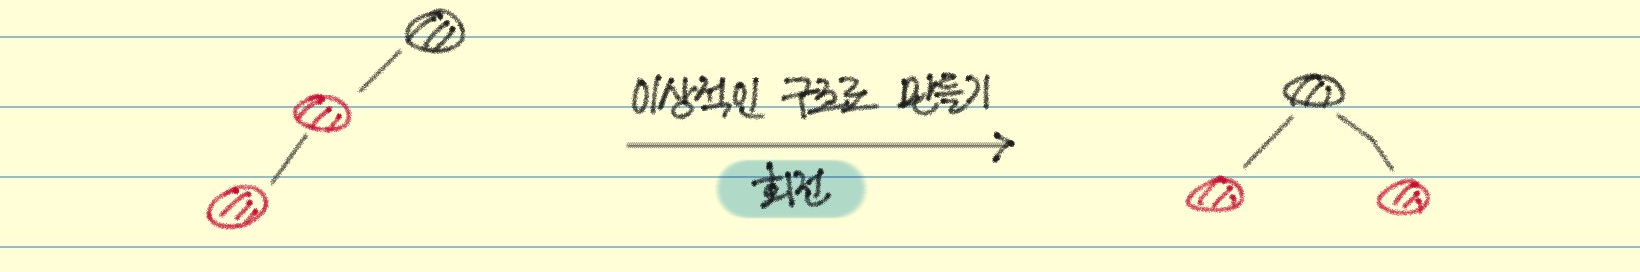 이상적인 구조로 만들기
회전